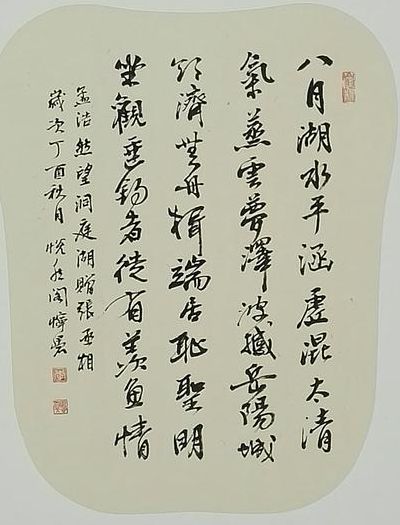 八月湖水平涵虛混太清
氣蒸雲夢澤波撼岳陽城
欲濟無舟楫端居恥聖明
坐觀垂釣者徒有羨魚情
孟浩然望洞庭湖贈張丞相
歲次丁酉秋月